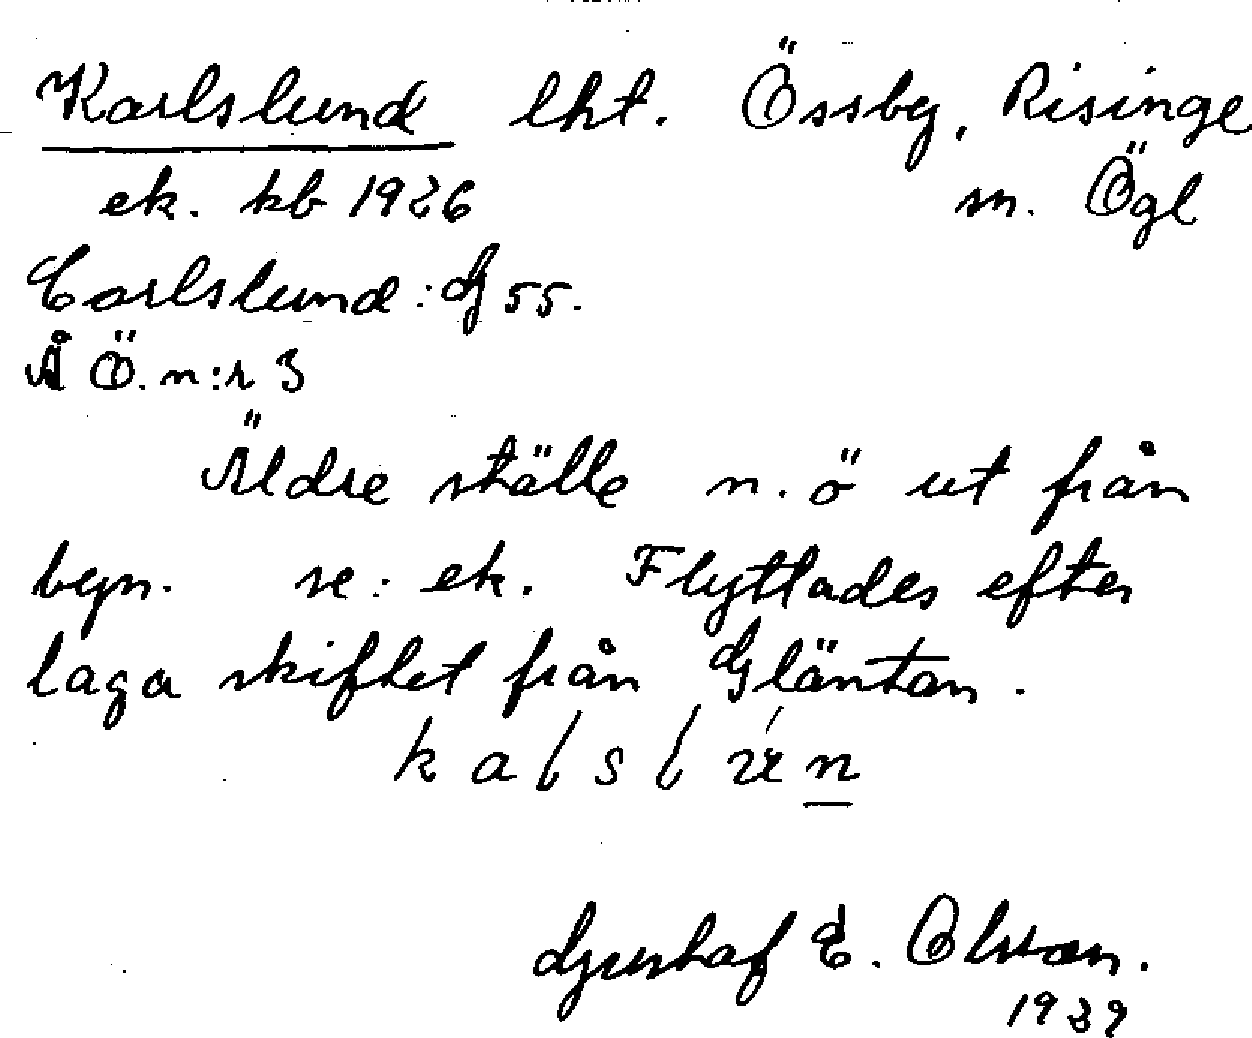 Karlslund lht. Össby, Risinge
ek. kb 1926 sn. Ögl
Carlslund: G 55.
Å Ö. n:r 3
Äldre ställe n. ö ut från
byn. se: ek. Flyttades efter
laga skiftet från Gläntan.
k a l s l u n
Gustaf E. Olsson.
1939